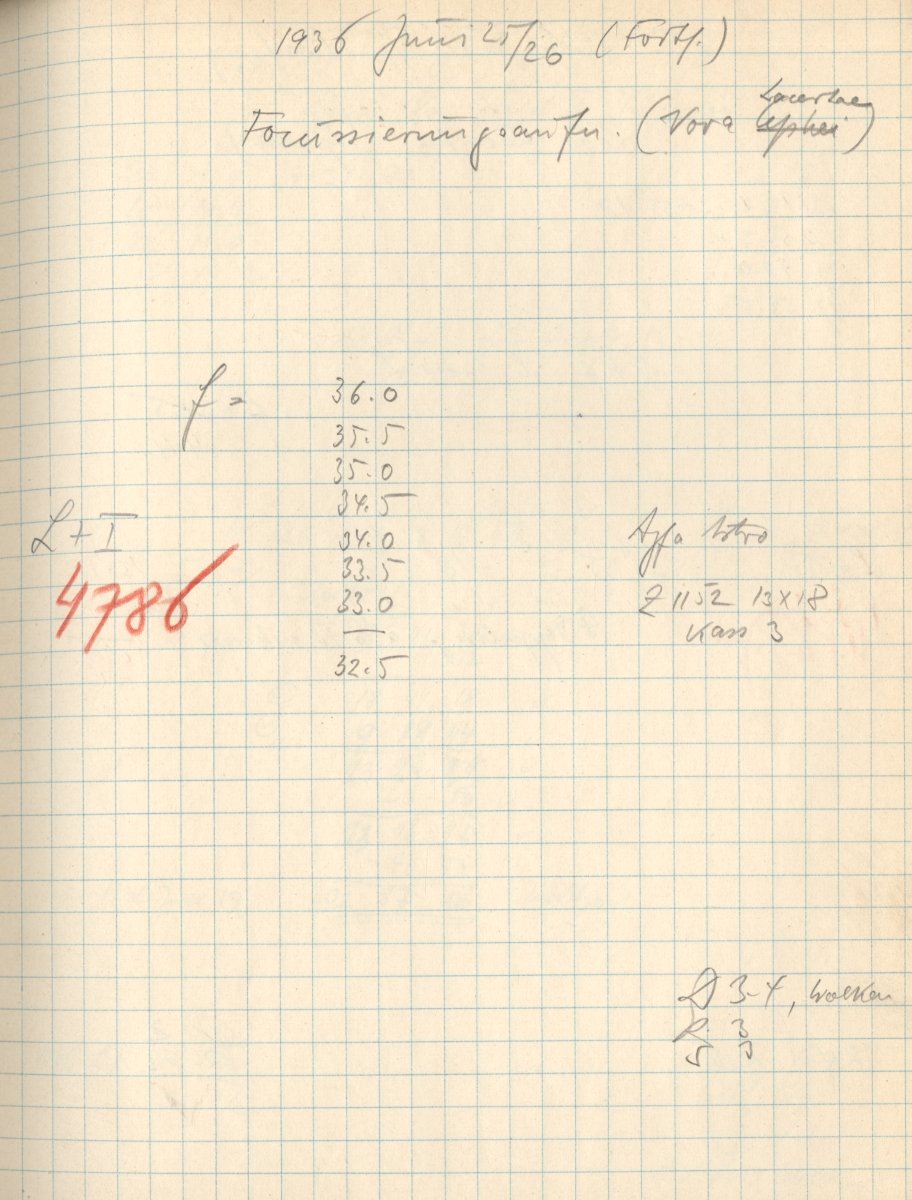 1936 Juni 25/26 (Fortf.)
Focussierungsaufn. (Nova Lacertae Cephei)
f = 36.0
35.5
35.0
34.5
L + I 34.0
33.5
4786 33.0
32.5
Agfa Astro
Z 1152 13x18
Kass 3
D 3-4, Wolken
R. 3
5 3